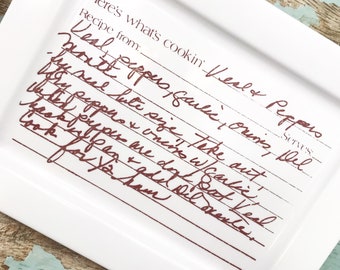 here's what's cookin' Veal & Peppers
Recipe from:
Serves:
Veal, peppers, garlic, onions, Del
Monte
Fry veal bite size, take out,
fry peppers & onions w/ garlic,
until peppers are done, put Veal
back in pan & add Del Monte.
Cook for ½ hour